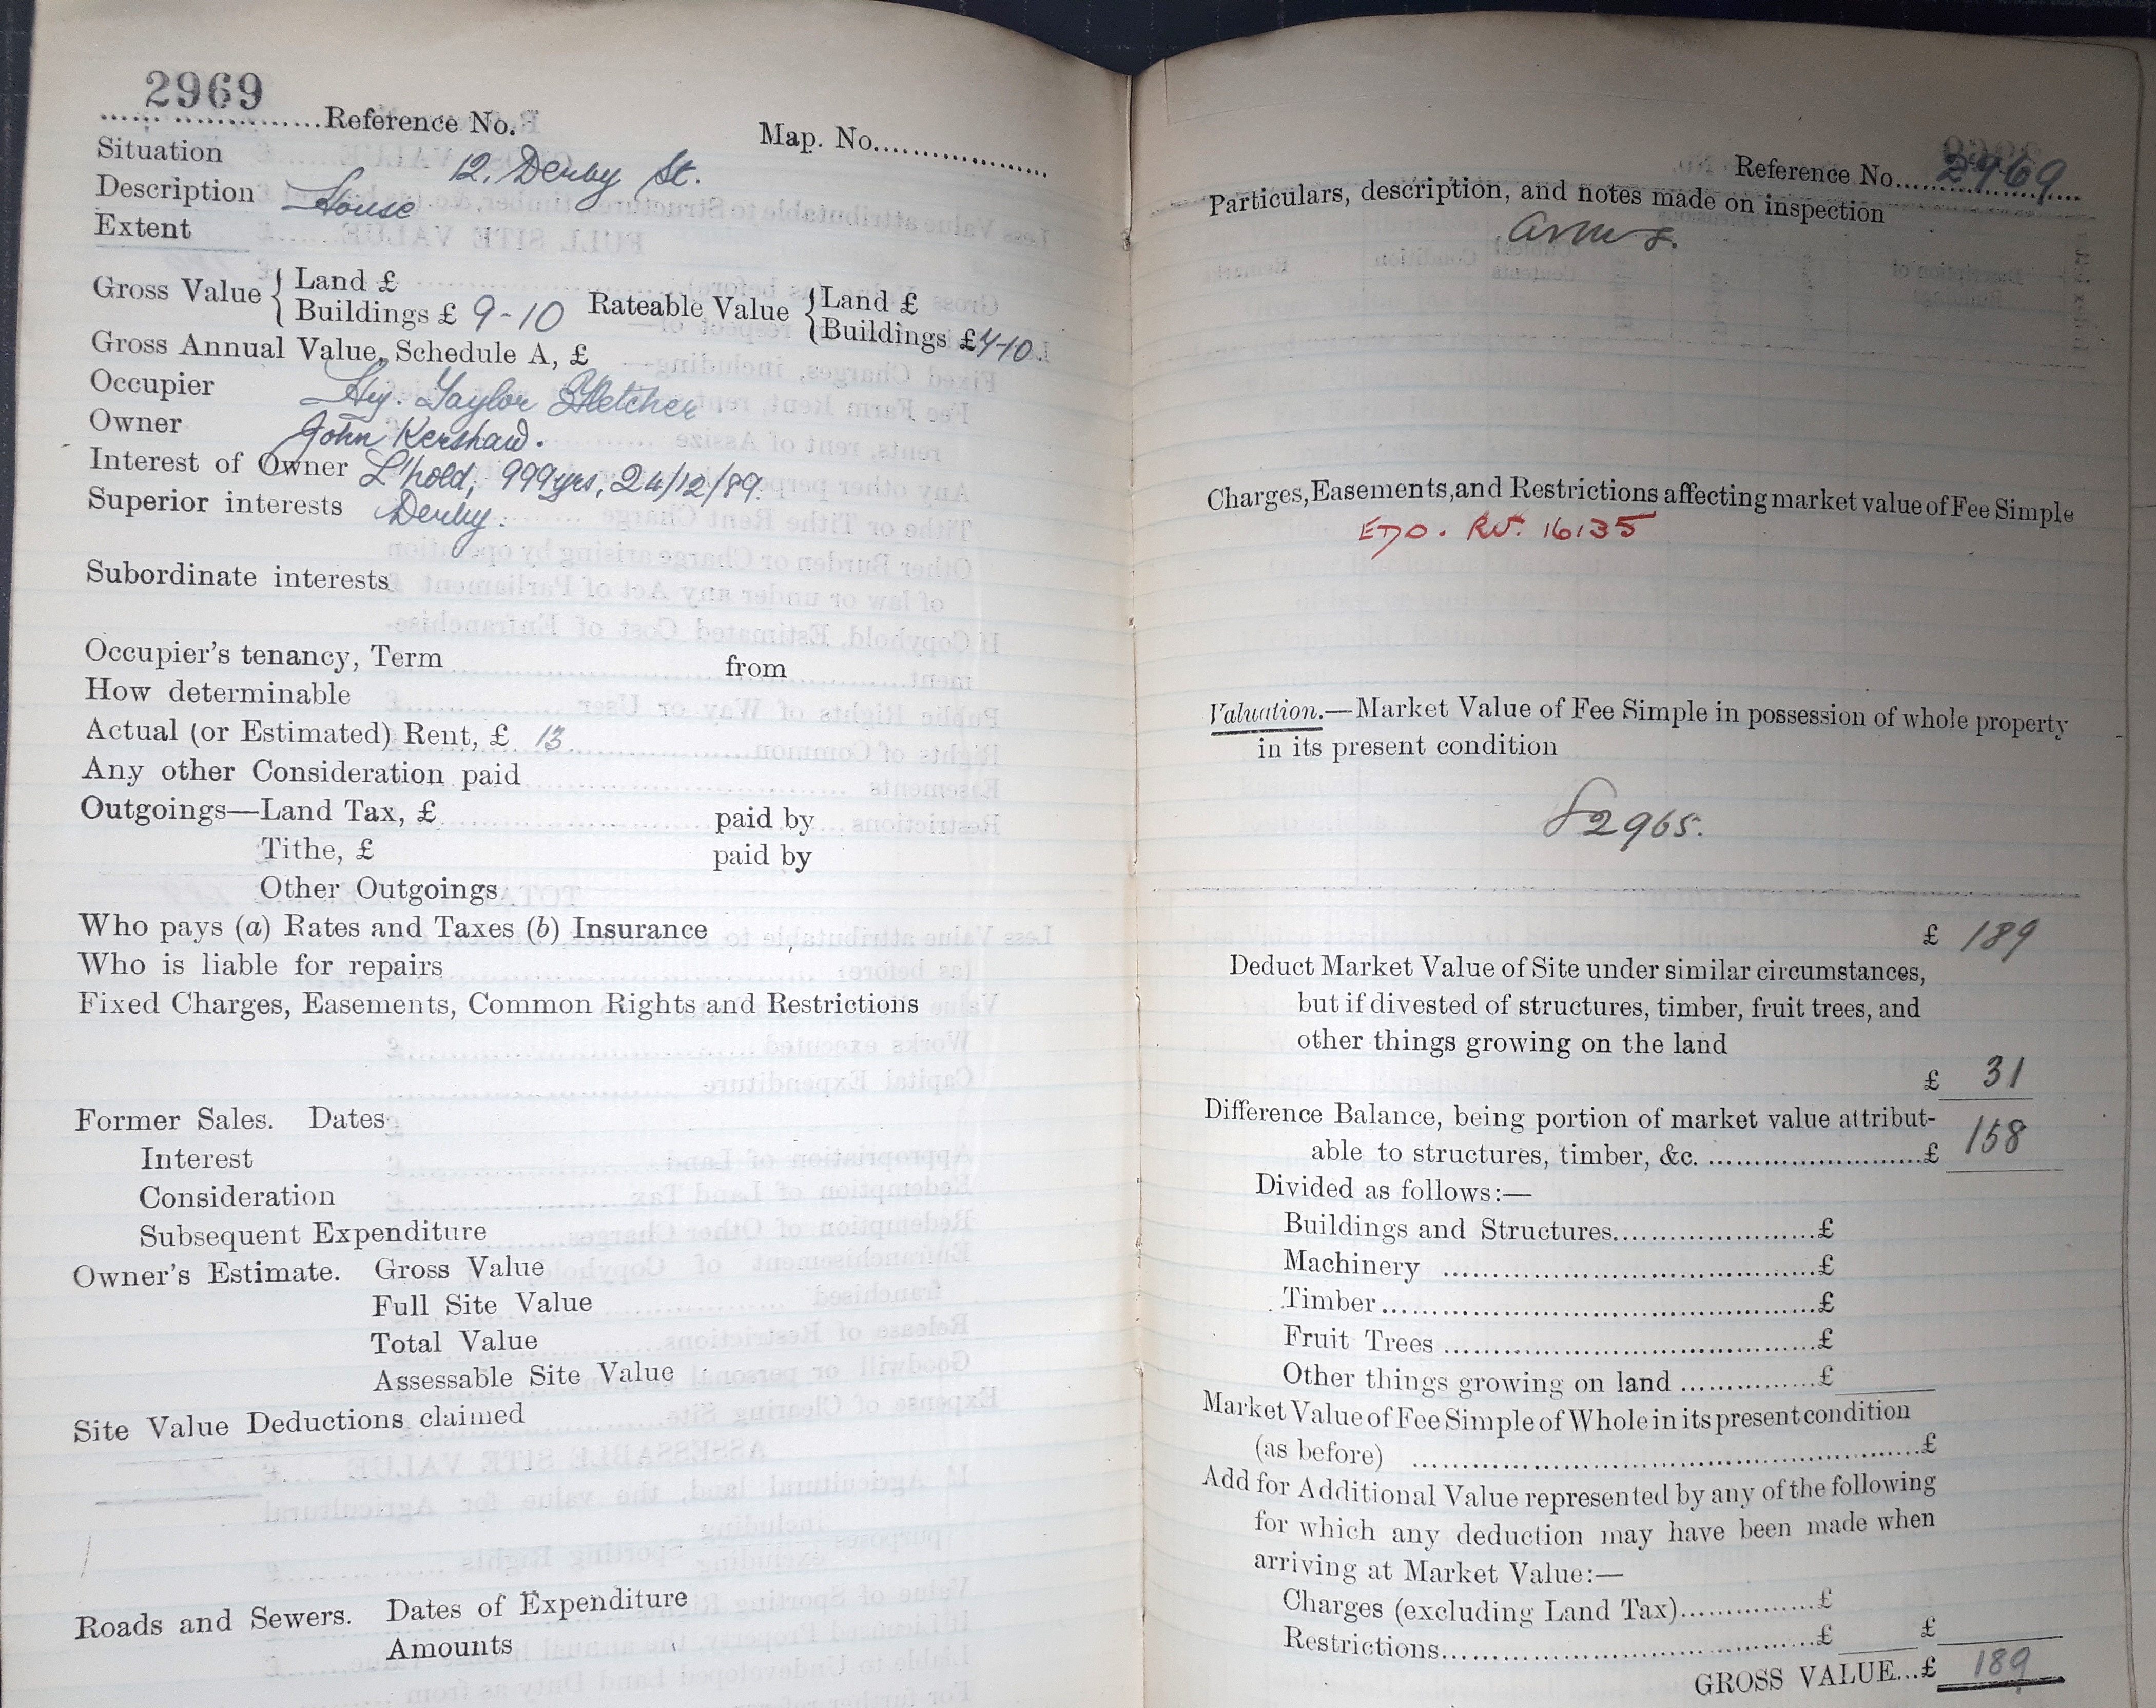 2969
Reference No.
Map. No.
Situation 12, Derby St.
Description House
Extent
Gross Value { Land £
Buildings £ 9-10
Rateable Value { Land £
Buildings £
Gross Annual Value, Schedule A, £
Occupier Hy. Taylor Fletcher
Owner John Kershaw.
Interest of Owner L'hold, 999 yrs, 24/12/89.
Superior interests Derby.
Subordinate interests
Occupier's tenancy, Term from
How determinable
Actual (or Estimated) Rent, £ 13
Any other Consideration paid
Outgoings—Land Tax, £ paid by
Tithe, £ paid by
Other Outgoings
Who pays (a) Rates and Taxes (b) Insurance
Who is liable for repairs
Fixed Charges, Easements, Common Rights and Restrictions
Former Sales. Dates
Interest
Consideration
Subsequent Expenditure
Owner's Estimate. Gross Value
Full Site Value
Total Value
Assessable Site Value
Site Value Deductions claimed
Roads and Sewers. Dates of Expenditure
Amounts
Reference No. 2969
Particulars, description, and notes made on inspection
Charges, Easements, and Restrictions affecting market value of Fee Simple
16135
Valuation.—Market Value of Fee Simple in possession of whole property
in its present condition
2965.
£ 189
Deduct Market Value of Site under similar circumstances,
but if divested of structures, timber, fruit trees, and
other things growing on the land
£ 31
Difference Balance, being portion of market value attribut-
able to structures, timber, &c. £ 158
Divided as follows:—
Buildings and Structures £
Machinery £
Timber £
Fruit Trees £
Other things growing on land £
Market Value of Fee Simple of Whole in its present condition
(as before) £
Add for Additional Value represented by any of the following
for which any deduction may have been made when
arriving at Market Value:—
Charges (excluding Land Tax) £
Restrictions £ £
GROSS VALUE...£ 189